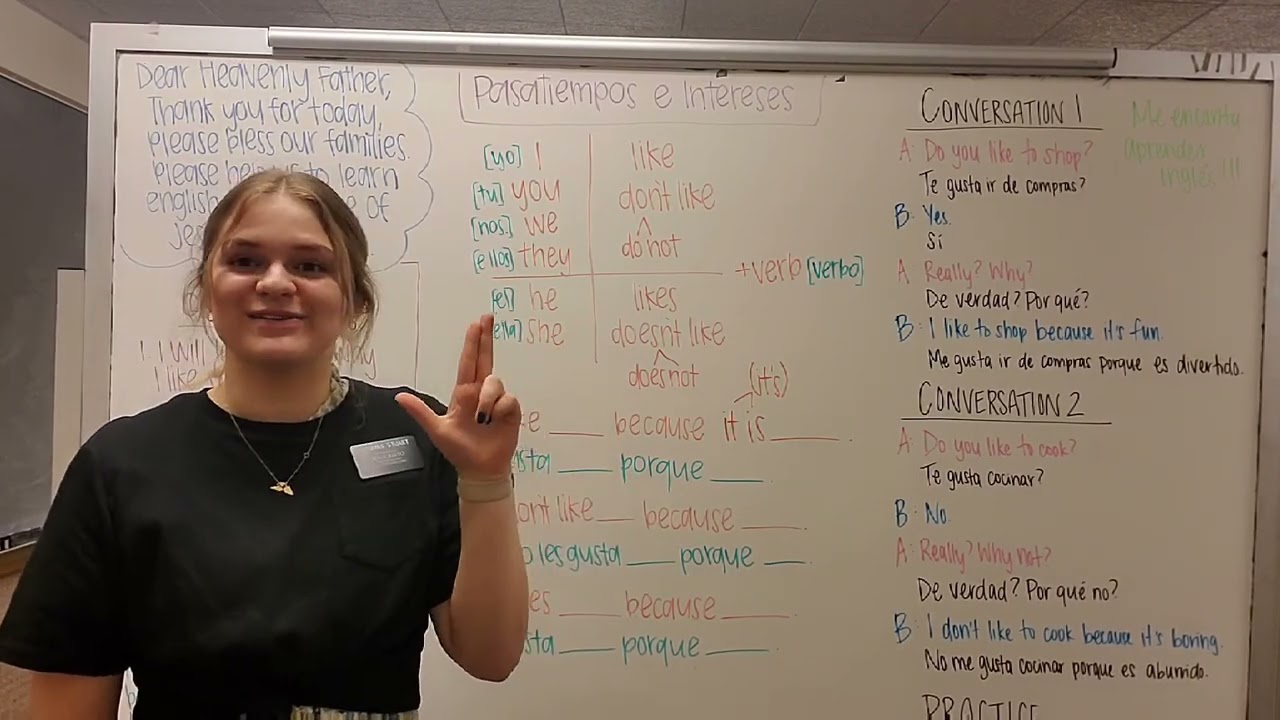 Dear Heavenly Father,
Thank you for today,
please bless our families.
Please help us to learn
english of
I will
I like
Pasatiempos e Intereses
[yo] I like
[tu] you don't like
[nos.] we
do not
[ellos] they
+verb [verbo]
[el] he likes
[ella] she doesn't like
does not
(it's)
because it is ___.
___ porque ___.
like ___ because ___.
les gusta ___ porque ___.
___ because ___.
___ porque ___.
CONVERSATION 1
A: Do you like to shop?
Te gusta ir de compras?
B: Yes.
Si
A Really? Why?
De verdad? Por qué?
B: I like to shop because it's fun.
Me gusta ir de compras porque es divertido.
CONVERSATION 2
A: Do you like to cook?
Te gusta cocinar?
B: No.
A: Really? Why not?
De verdad? Por qué no?
B: I don't like to cook because it's boring.
No me gusta cocinar porque es aburrido.
PRACTICE
Me encanta
aprender
inglés!!!